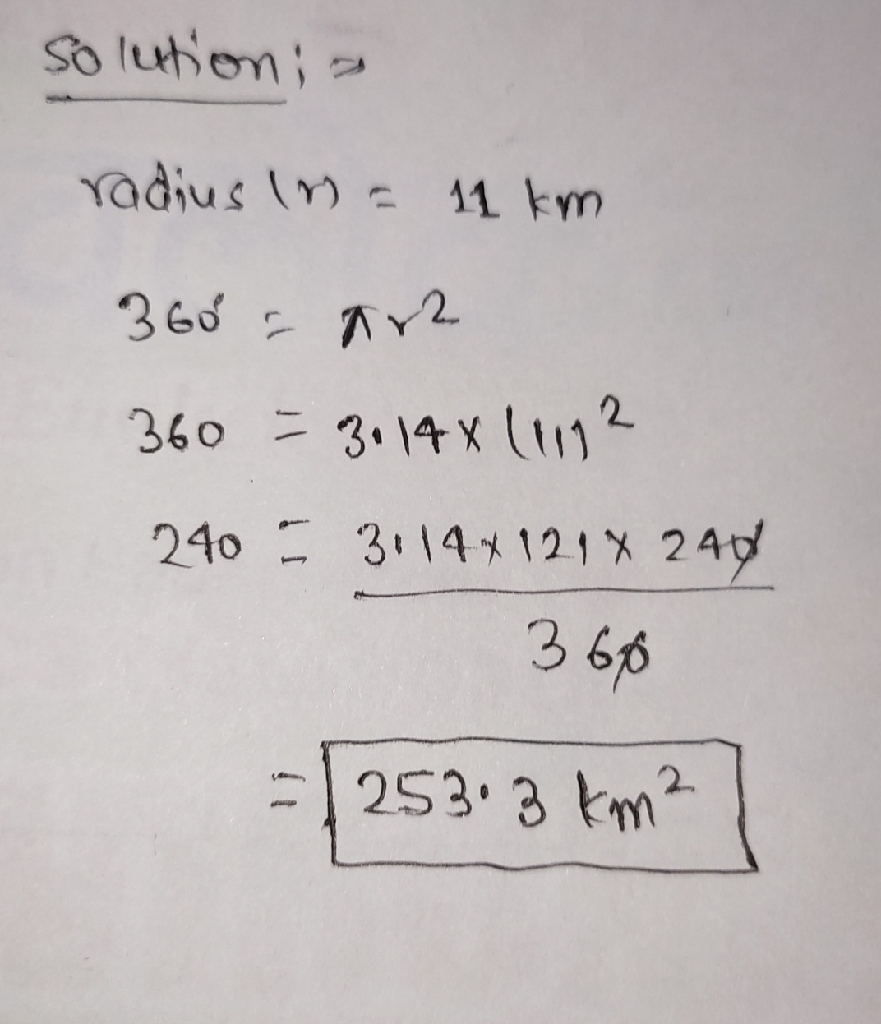 Solution; =
radius (r) = 11 km
360° = πr2
360 = 3.14 x (11)2
240 = 3.14 x 121 x 240
360
= 253.3 km2